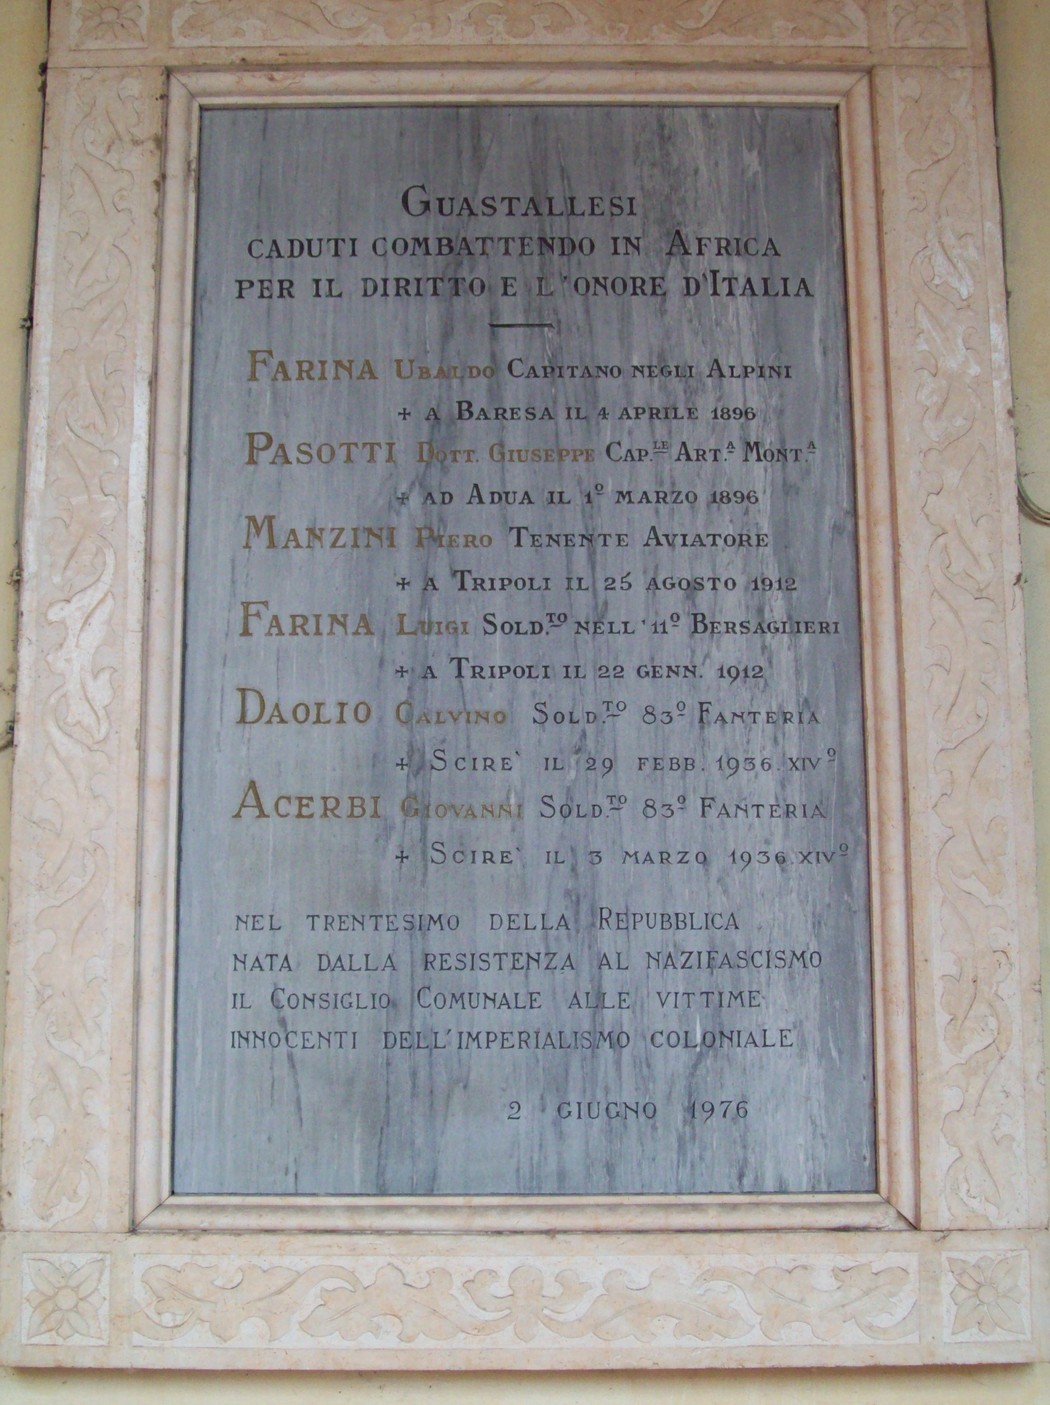 Guastallesi
caduti combattendo in Africa
per il diritto e l'onore d'Italia
Farina Ubaldo Capitano negli Alpini
+ a Baresa il 4 aprile 1896
Pasotti Dott. Giuseppe Cap.le Art.a Mont.a
+ ad Adua il 1º marzo 1896
Manzini Piero Tenente Aviatore
+ a Tripoli il 25 agosto 1912
Farina Luigi Sold.to nell'11º Bersaglieri
+ a Tripoli il 22 genn. 1912
Daolio Calvino Sold.to 83º Fanteria
+ Scire` il 29 febb. 1936.XIVº
Acerbi Giovanni Sold.to 83º Fanteria
+ Scire` il 3 marzo 1936.XIVº
nel trentesimo della Repubblica
nata dalla Resistenza al nazifascismo
il Consiglio Comunale alle vittime
innocenti dell'imperialismo coloniale
2 giugno 1976